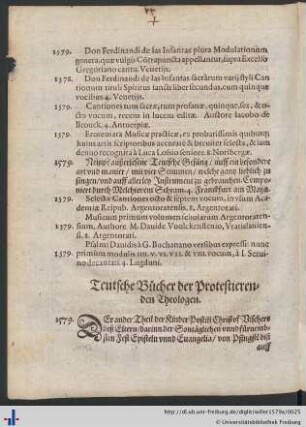 1579. Don Ferdinandi de las Infantas plura Modulationum
genera, quæ vulgo Cōtrapuncta appellantur, supra Excelso
Gregoriano cantu Venetijs.
1578. Don Ferdinandi de las Infantas sacrarum varij styli Can
tionum tituli Spiritus sancti liber secundus, cum quinque
vocibus 4. Venetijs.
1579. Cantiones tum sacræ, tum profanæ, quinque, sex, & o-
cto vocum, recens in lucem editæ. Auctore Iacobo de
Brouck. 4. Antuerpiæ.
1579. Erotemata Musicæ practicæ, ex probatissimis quibus
huius artis scriptoribus accuratè & breuiter selecta, & iam
denuo recognita à Luca Lossio seniore. 8. Noribergæ.
1579. Neuwe außerlesene Teutsche Gesäng / auff ein besondere
art vnd manier / mit vier Stimmen / welche gantz lieblich zu
singen / vnd auff allerley Instrument zu gebrauchen. Compo
niert durch Melchiorem Schram. 4. Franckfurt am Mayn.
1579. Selectæ Cantiones octo & septem vocum, in vsum Aca
demiæ Reipub. Argentoratensis. 2. Argentorati.
Musicum primum volumen scholarum Argentoraten-
sium, Authore M. Dauide Vvolckensteinio, Vratislauien-
si. 2. Argentorati.
1579. Psalmi Dauidis à G. Buchanano versibus expressi: nunc
primùm modulis IIII. V. VI. VII. & VIII. vocum, à I. Serui-
no decantati 4. Lugduni.
Teutsche Bücher der Protestieren-
den Theologen.
1579. Der ander Theil der Kinder Postill Christof Vischers
deß Eltern darinn der Sontäglichen vnnd fürnemb-
sten Fest Episteln vnnd Euangelia / von Pfingsten biß
auff
http://dl.ub.uni-freiburg.de/diglit/willer1579a/0025
© Universitätsbibliothek Freiburg